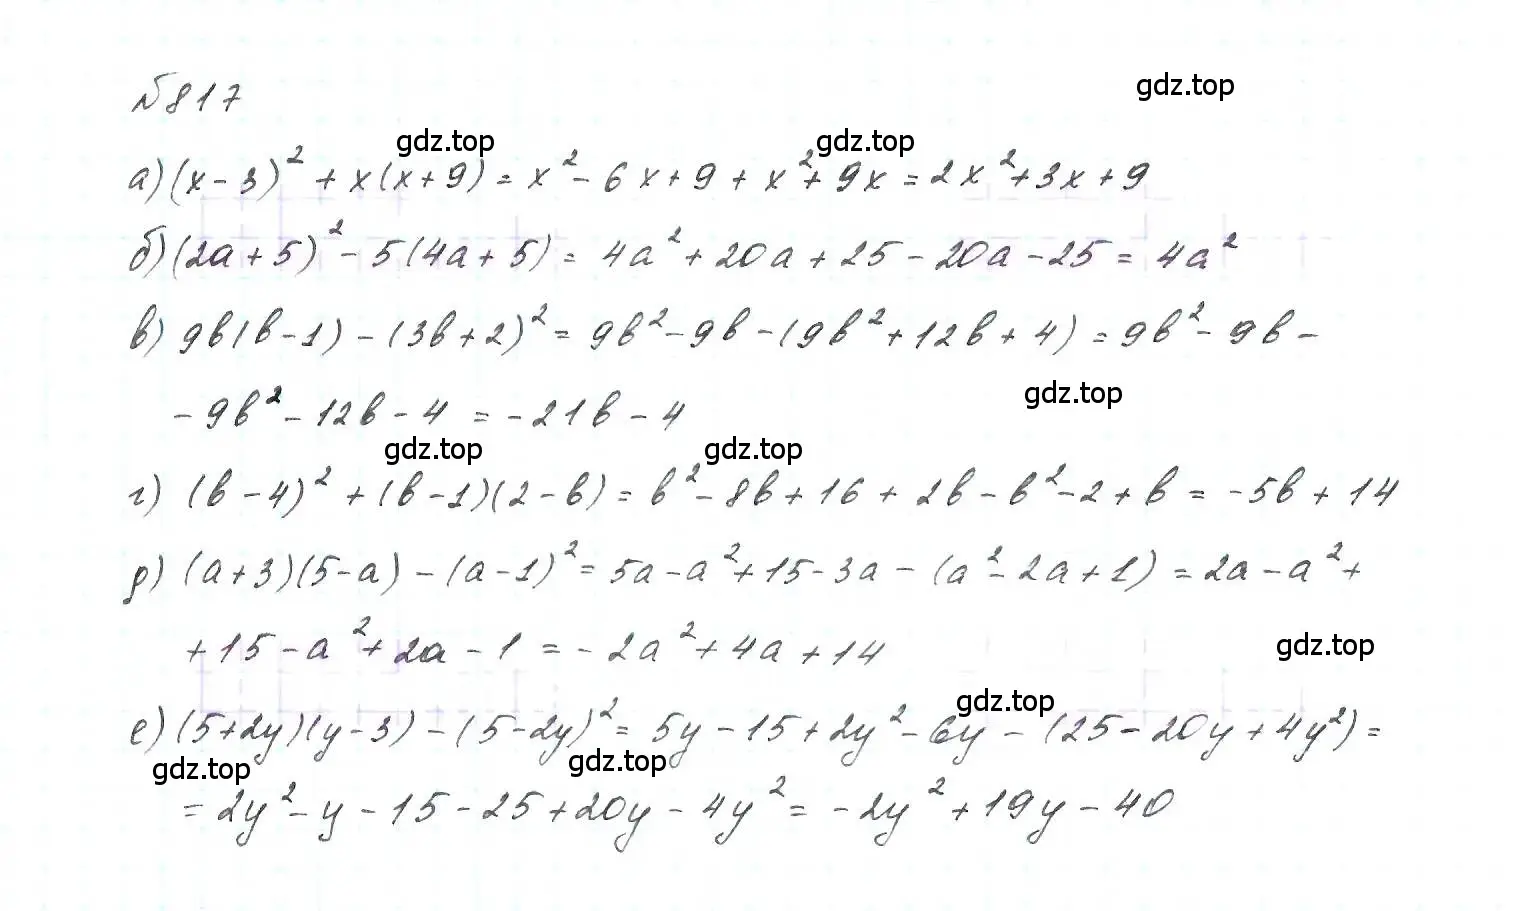 №817
gdz.top
gdz.top
gdz.top
а) (x - 3)² + x(x + 9) = x² - 6x + 9 + x² + 9x = 2x² + 3x + 9
б) (2a + 5)² - 5(4a + 5) = 4a² + 20a + 25 - 20a - 25 = 4a²
в) 9b(b - 1) - (3b + 2)² = 9b² - 9b - (9b² + 12b + 4) = 9b² - 9b -
- 9b² - 12b - 4 = - 21b - 4
gdz.top
gdz.top
gdz.top
г) (b - 4)² + (b - 1)(2 - b) = b² - 8b + 16 + 2b - b² - 2 + b = - 5b + 14
д) (a + 3)(5 - a) - (a - 1)² = 5a - a² + 15 - 3a - (a² - 2a + 1) = 2a - a² +
+ 15 - a² + 2a - 1 = - 2a² + 4a + 14
gdz.top
gdz.top
е) (5 + 2y)(y - 3) - (5 - 2y)² = 5y - 15 + 2y² - 6y - (25 - 20y + 4y²) =
gdz.top
gdz.top
= 2y² - y - 15 - 25 + 20y - 4y² = - 2y² + 19y - 40